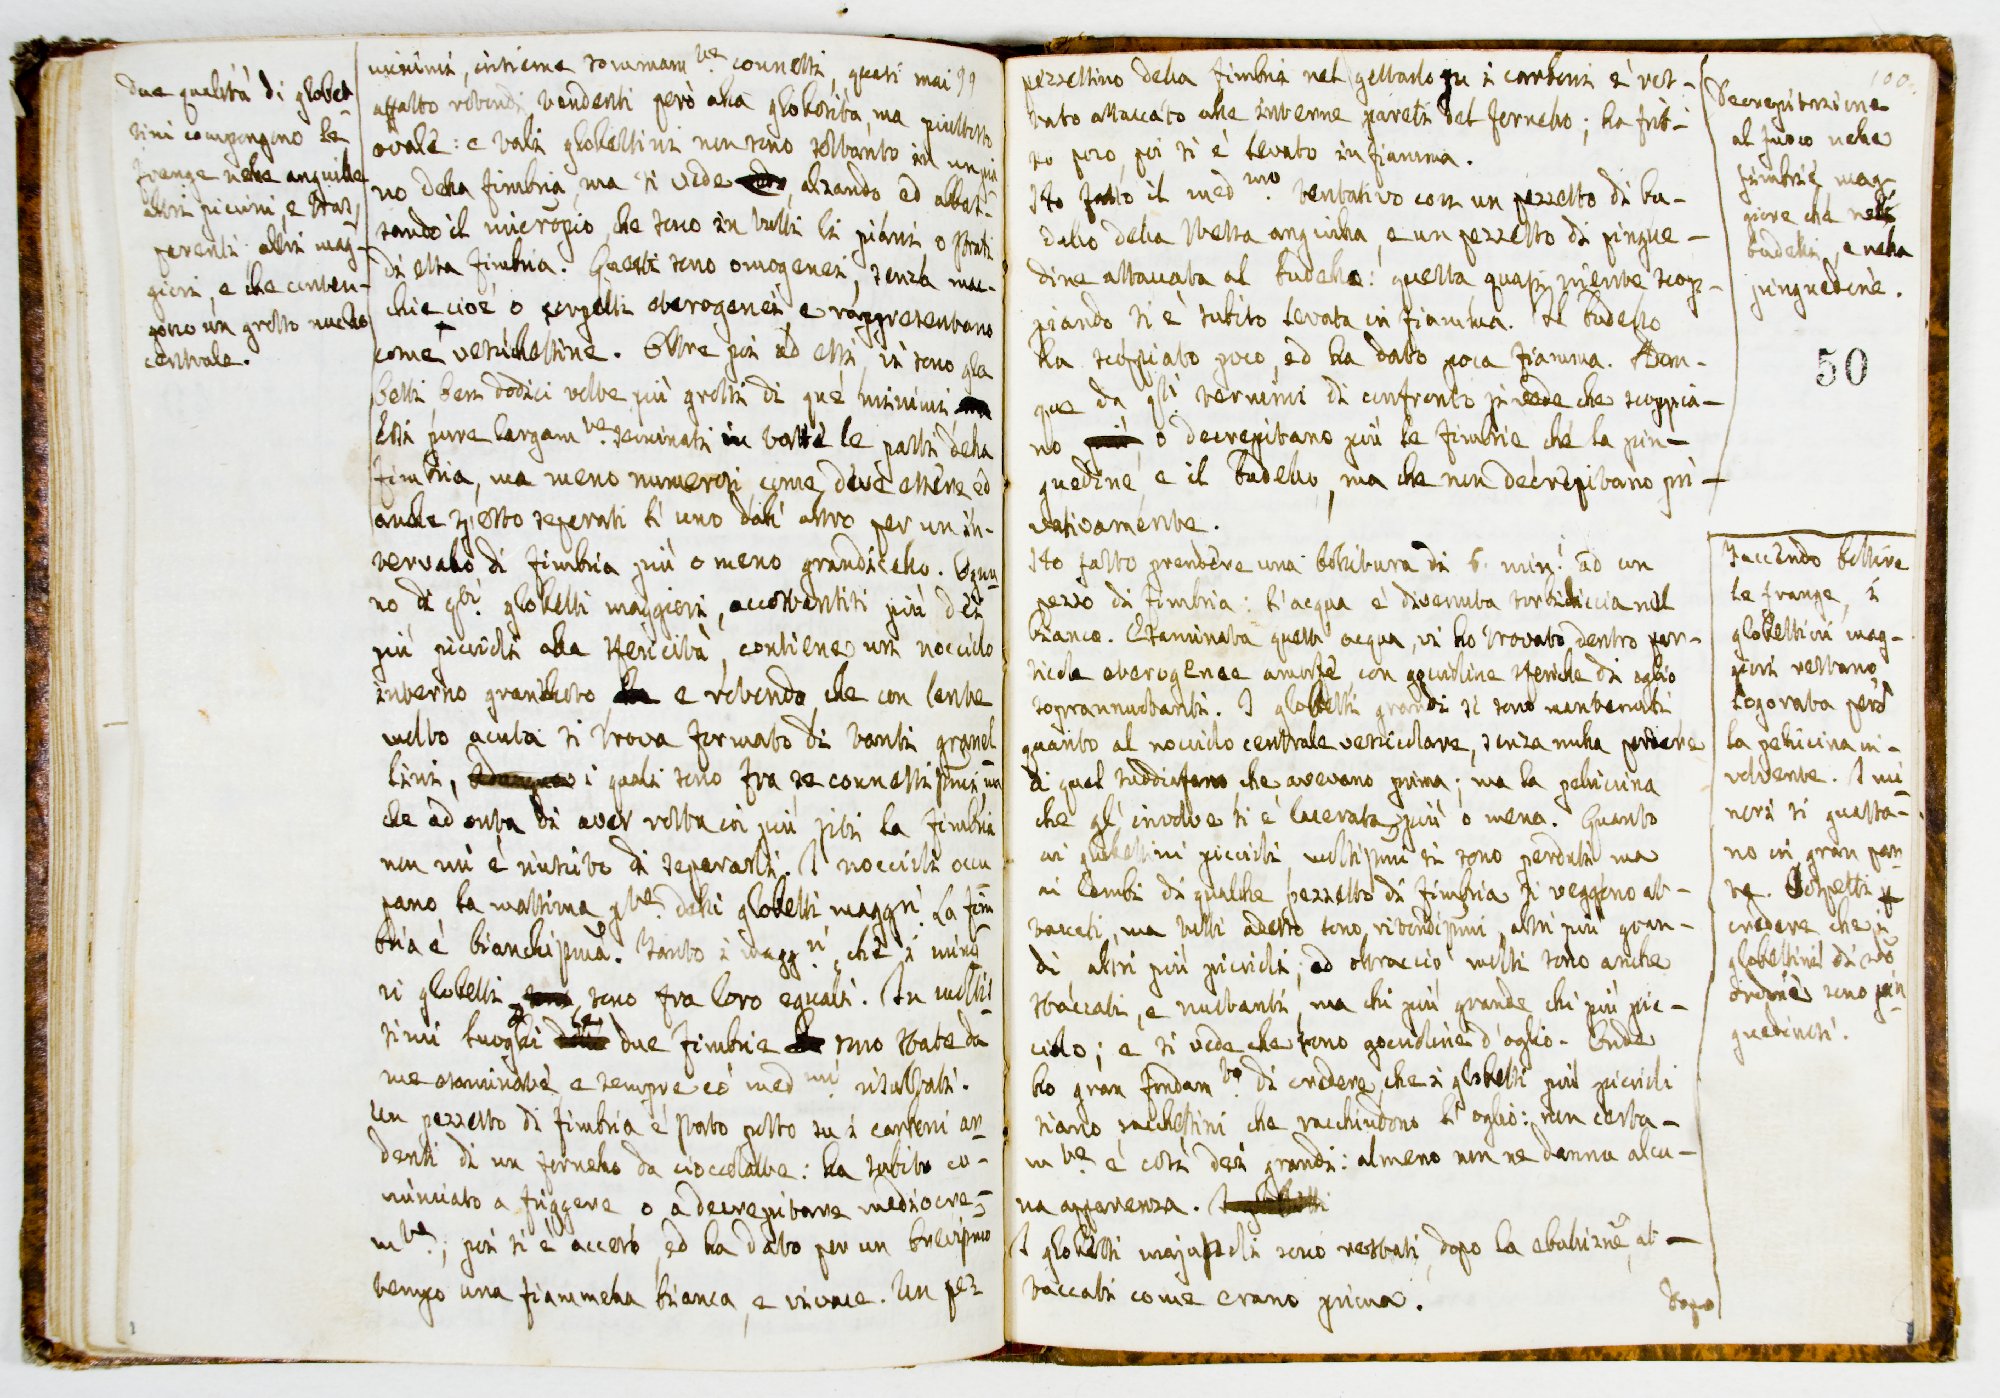 due qualità di globet-
tini compongono le
frange nelle anguille
altri piccini, e tras-
parenti, altri mag-
giori, e che conten-
gono un grosso nucleo
centrale.
minimi, insieme sommam.te connessi, quasi mai 99
affatto rotondi tendenti però alla globosità, ma piuttosto
ovale: e tali globettini non sono soltanto in un pia
no della fimbria, ma si vede alzando ed abbas-
sando il micropio, che sono in tutti li piani o strati
di essa fimbria. Questi sono omogenei, senza mac-
chie cioè o corpetti eterogenei e rappresentano
come vesichettine. Oltre poi ad essi, vi sono glo
betti ben dodici volte più grossi di que' minimi
Essi pure largam.te seminati in tutte le parti della
fimbria, ma meno numerosi, come deve essere ed
anche spesso separati l'uno dall'altro per un in-
tervallo di fimbria più o meno grandicello. Ognu
no di q.ti globetti maggiori, accostantisi più dei
più piccioli alla sfericità, contiene un nocciolo
interno granelloso e rotondo, che con lente
molto acuta si trova formato di tanti granel
lini, i quali sono fra se connessissimi,
che ad onta di aver rotta in più siti la fimbria
non mi è riuscito di separarli. I noccioli occu
pano la massima p.te delli globetti magg.ri La fim
bria è bianchissima. Tanto i magg.ri, che i mino
ri globetti sono fra loro eguali. In moltis
simi luoghi le due fimbrie sono state da
me esaminate e sempre co' med.mi risultati.
Un pezzetto di fimbria è stato posto su i carboni ar
denti di un fornello da cioccolatte: ha subito co-
minciato a friggere o a decrepitare mediocre-
m.te; poi si è acceso, ed ha dato per un brevissimo
tempo una fiammella bianca, e vivace. Un pez
100.
pezzettino della fimbria nel gettarlo su i carboni è res-
tato attaccato alle interne pareti del fornello; ha frit-
to poco, poi si è levato in fiamma.
Ho fatto il med.mo tentativo con un pezzetto di bu-
dello della stessa anguilla, e un pezzetto di pingue-
dine attaccata al budello: questa quasi niente scop-
piando si è subito levata in fiamma. Il budello
ha scoppiato poco, ed ha dato poca fiamma. Dun-
que da gli termini di confronto si vede che scoppia-
no o decrepitano più le fimbrie, che la pin-
guedine e il budello, ma che non decrepitano pri-
vativamente.
Ho fatto prendere una bollitura di 6. min.i ad un
pezzo di fimbria: l'acqua è divenuta torbidiccia nel
bianco. Esaminata quest'acqua, vi ho trovato dentro par-
ticole eterogenee amorfe, con gocioline sferiche di oglio
soprannuotanti. I globetti grandi si sono mantenuti
quanto al nocciolo centrale vescicolare, senza nulla perdere
di quel che avevano prima; ma la pellicina
che gl'involve si è lacerata più o meno. Quanto
ai globettini piccioli moltissimi si sono perduti ma
ai lembi di qualche pezzetto di fimbria si veggono at-
taccati, ma tutti adesso sono ritondissimi, altri più gran-
di altri più piccioli; ad ciò molti sono anche
staccati, e nuotanti, ma chi più grande chi più pic-
ciolo; e si vede che sono gocioline d'oglio. Onde
ho gran fondam.to di credere, che i globetti più piccioli
siano sacchettini che racchiudono l'oglio: non certa-
m.te è così dei grandi: almeno non ne danno alcu-
na apparenza.
I globetti majuscoli sono restati, dopo la ebulizione, at-
taccati come erano prima.
Dopo
Decrepitazione
al fuoco nelle
fimbrie mag-
giore che nelli
budelli, e nella
pinguedine.
50
Faccendo bollire
le frange, i
globettini mag-
giori restano,
logorata però
la pellicina in-
volvente. I mi
nori si guasta-
no in gran par
te. Sospetti p
credere che i
globettini di 2do
ordine sono pin-
guedinosi.